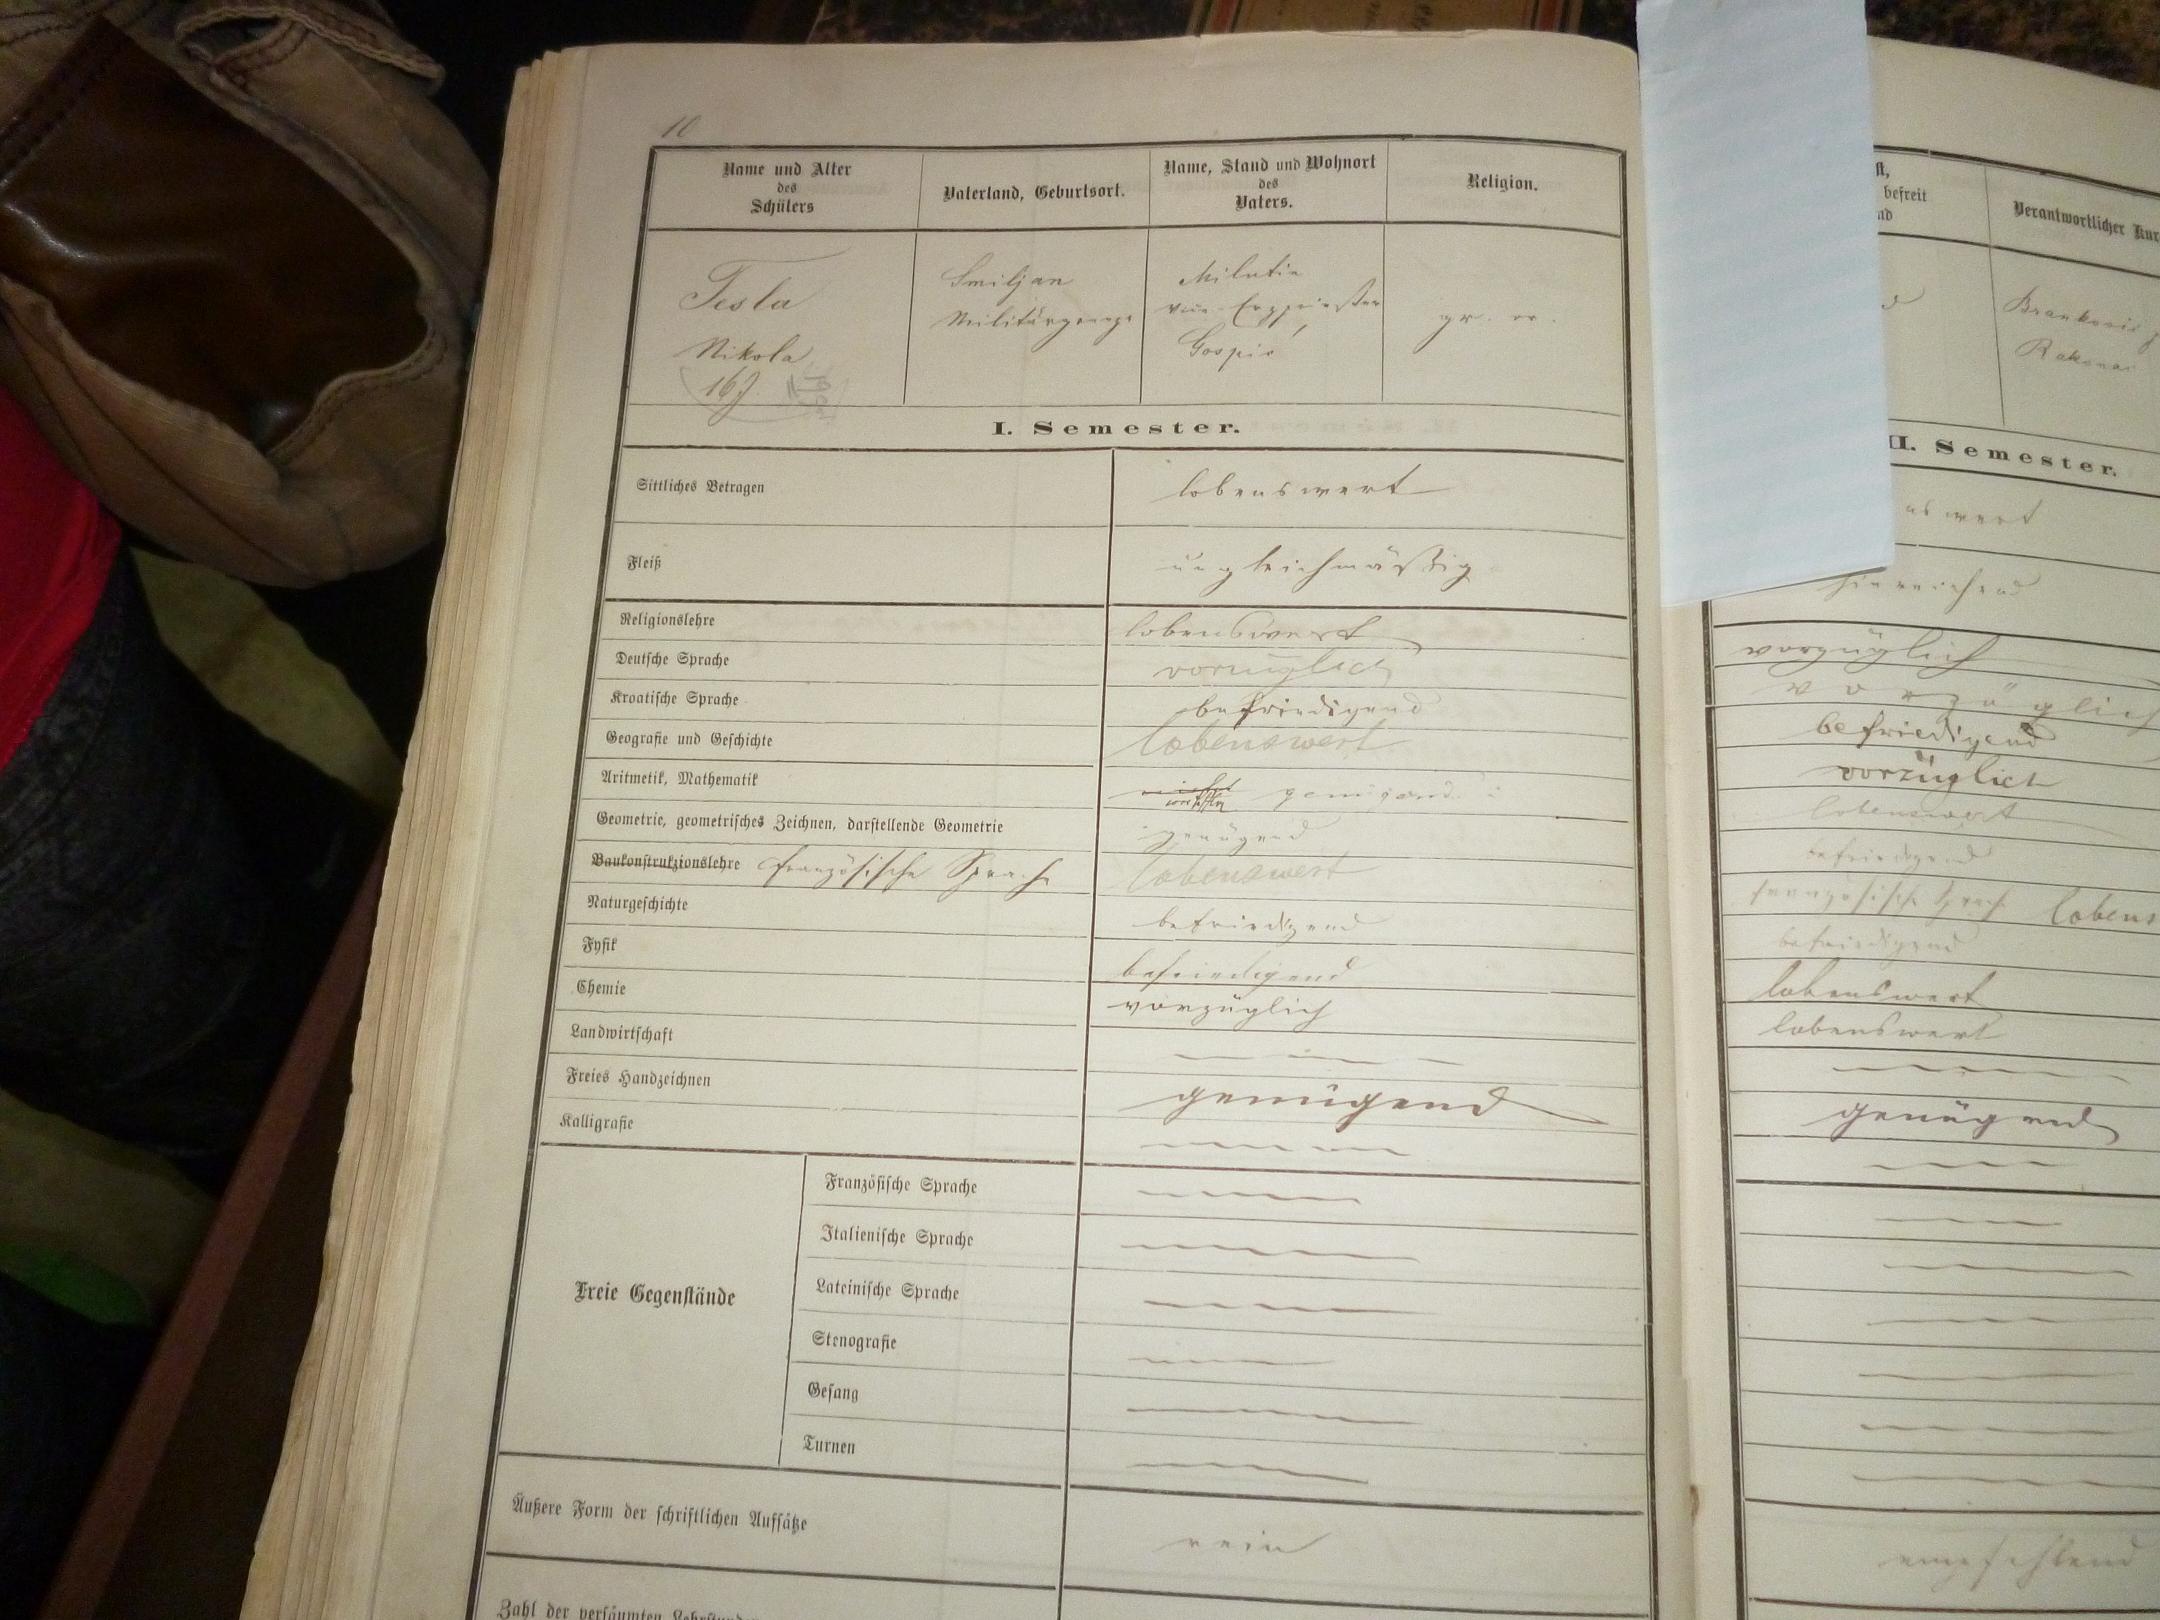 10
Name und Alter
des
Schülers
Vaterland, Geburtsort.
Name, Stand und Wohnort
des
Vaters.
Religion.
Tesla
Nikola
16 J.
Smiljan
Militärgrenze
Milutin
Vice-Erzpriester
Gospić
gr. or.
I. Semester.
Sittliches Betragen
lobenswert
Fleiß
ungleichmäßig
Religionslehre
lobenswert
Deutsche Sprache
vorzüglich
Kroatische Sprache
befriedigend
Geografie und Geschichte
lobenswert
Aritmetik, Mathematik
genügend
Geometrie, geometrisches Zeichnen, darstellende Geometrie
genügend
Baukonstrukzionslehre französische Sprache
lobenswert
Naturgeschichte
befriedigend
Fysik
befriedigend
Chemie
vorzüglich
Landwirtschaft
Freies Handzeichnen
genügend
Kalligrafie
Freie Gegenstände
Französische Sprache
Italienische Sprache
Lateinische Sprache
Stenografie
Gesang
Turnen
Äußere Form der schriftlichen Aufsätze
rein
Zahl der versäumten Lehrstunden
befreit
Verantwortlicher Kur
Branković
Rakovac
II. Semester.
wert
hinreichend
vorzüglich
vorzüglich
befriedigend
vorzüglich
lobenswert
befriedigend
französische Sprach lobens
befriedigend
lobenswert
lobenswert
genügend
empfehlend